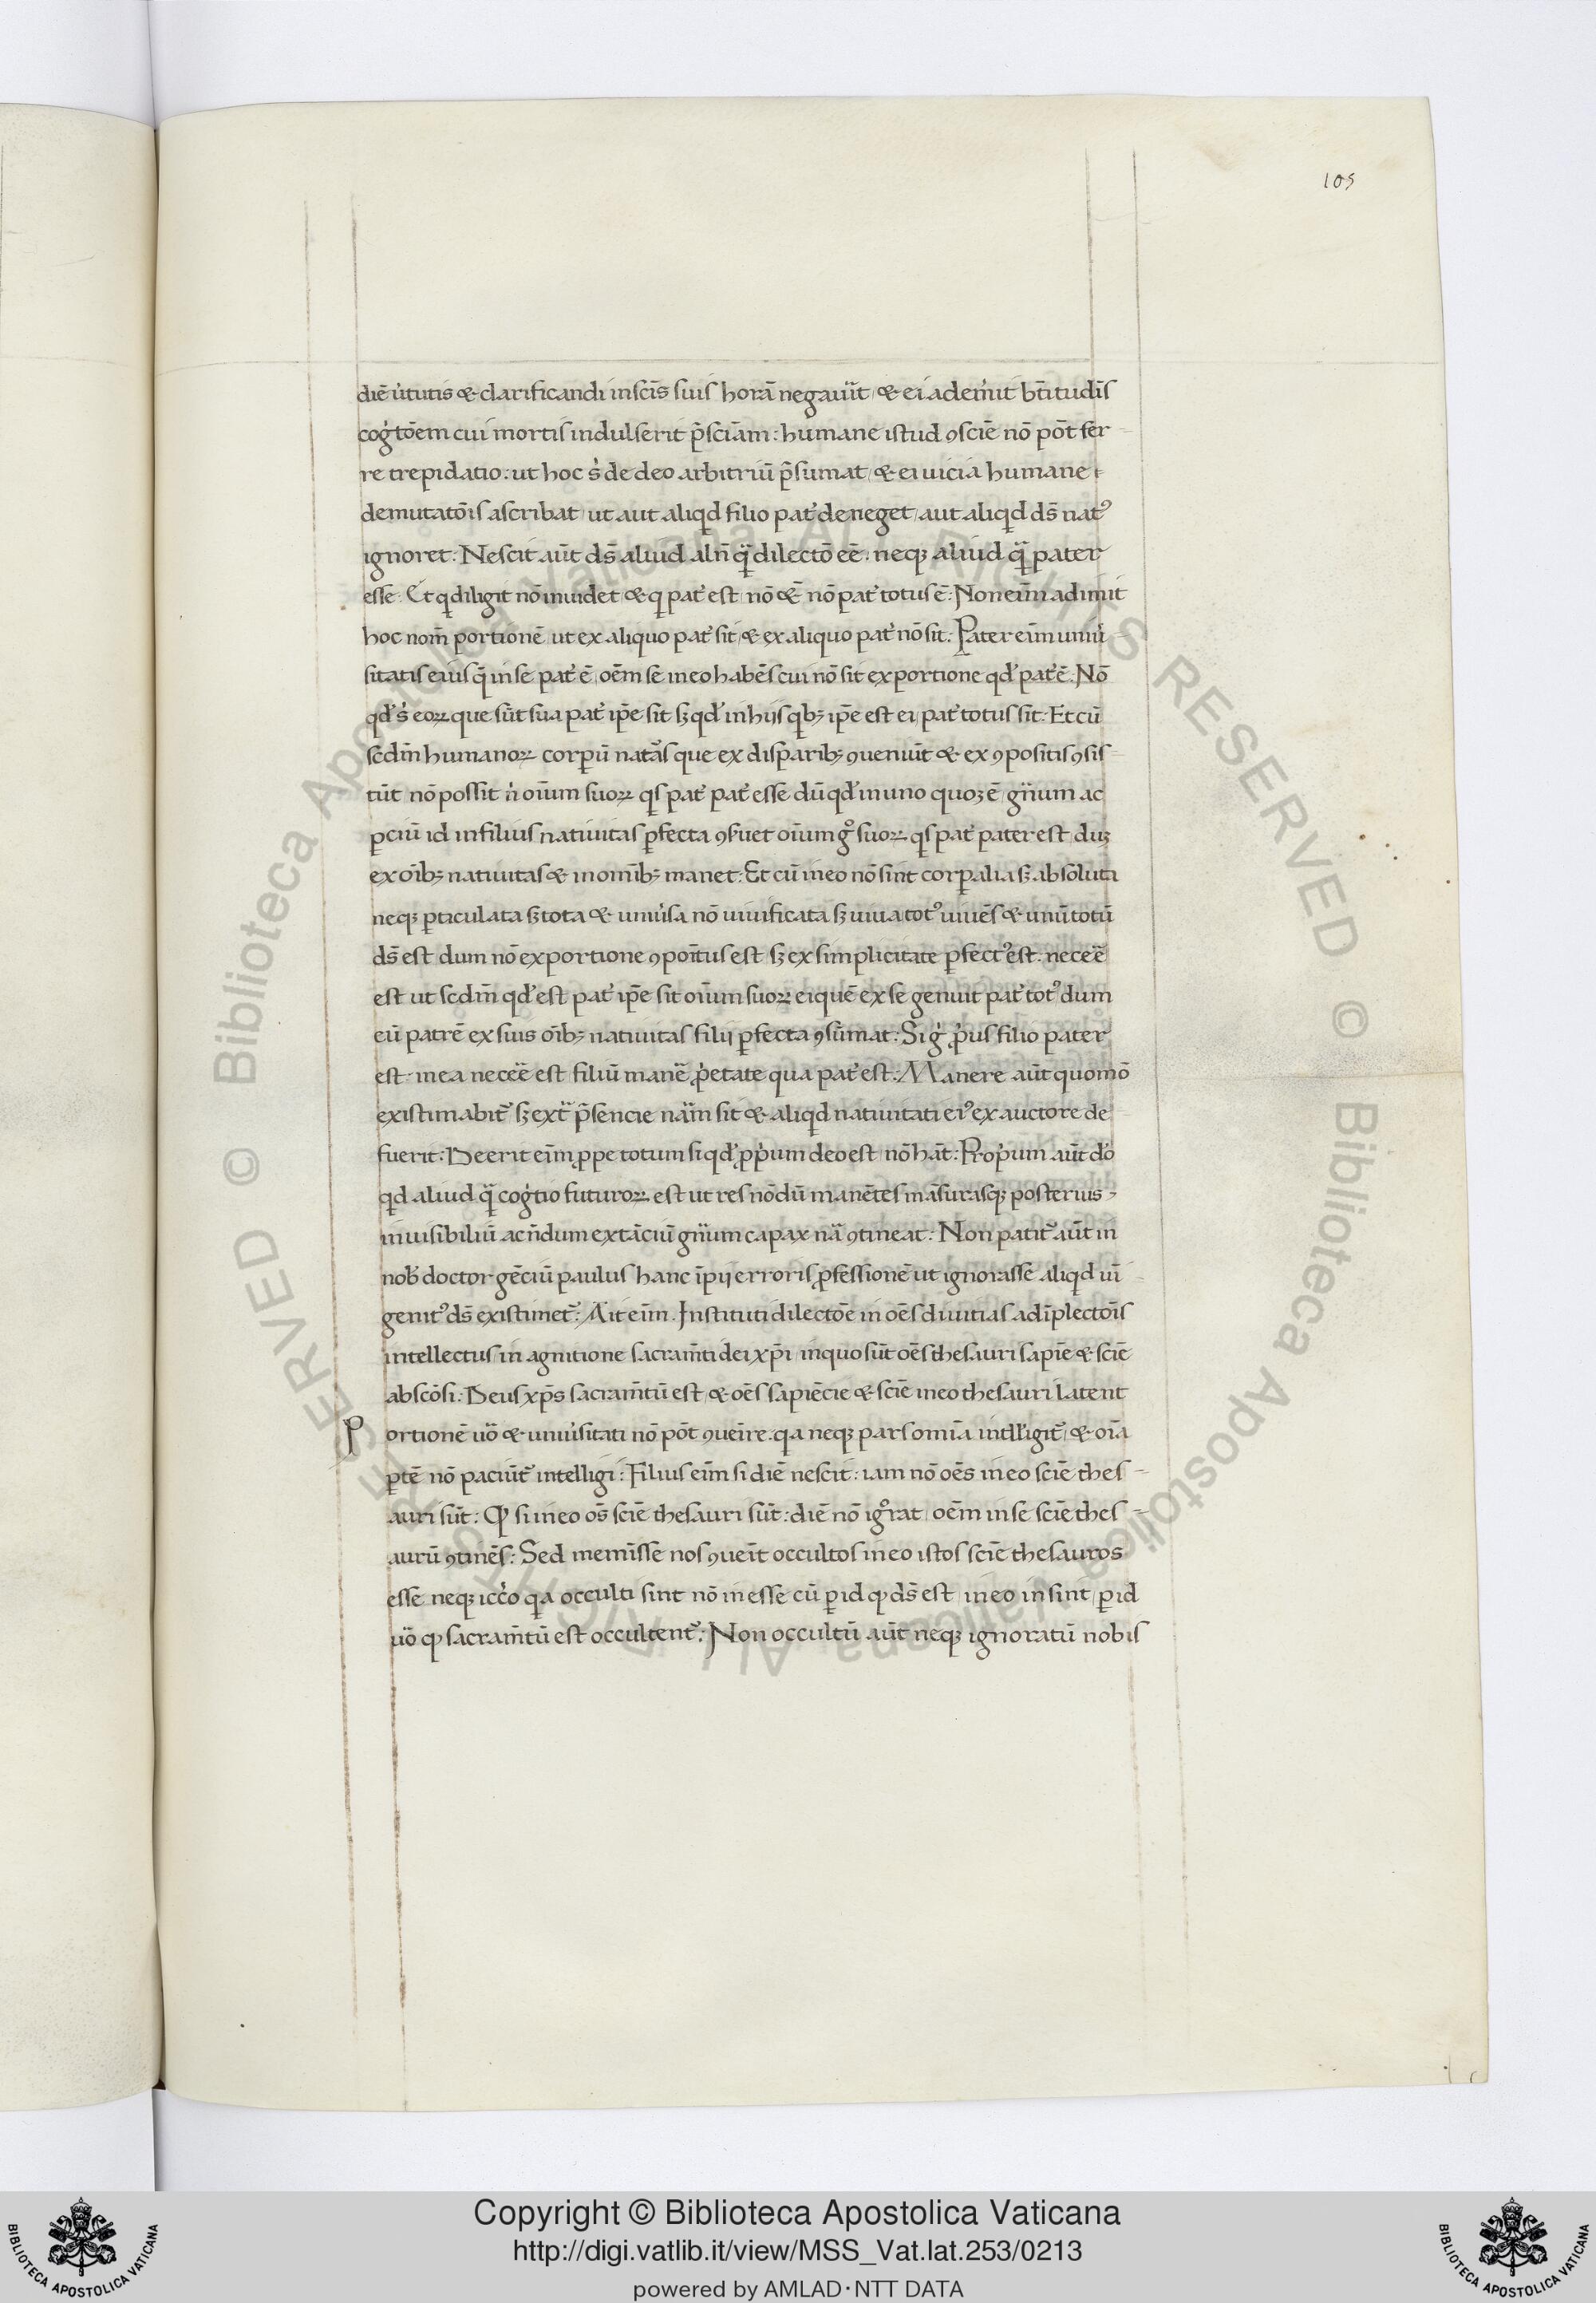 105
diē ủtutis & clarificandi in scīs suis horā negauūt / & ei ademit bt̄itudīs
cog̍tōem cui mortis indulserit p̄sciam : humane istud ꝯsciē nō pōt fer
re trepidatio : ut hoc s̍ de deo arbitriū p̄sumat / & ei uicia humane
demutatōis ascribat / ut aut aliqd filio pat̍ deneget / aut aliqd ds̄ natꝰ
ignoret : Nescit aūt ds̄ aliud aln̄ q̈ dilectō eē . neqȝ aliud q̈ pater
esse . Et q diligit nō inuidet / & q pat̍ est / nō & nō pat̍ totus ē : Non eim̄ adimit
hoc nom̄ portionē ut ex aliquo pat̍ sit / & ex aliquo pat̍ nō sit : Pater eim̄ uniu̍
sitatis eius q̄ in se pat̍ ē / oēm se in eo habēs cui nō sit ex portione qd̍ pat̍ ē . Nō
qd̍ s̍ eoꝝ que sūt sua pat̍ ip̄e sit sȝ qd̍ in hijs qbȝ ip̄e est ei / pat̍ totus sit : Et cū
scdm̄ humanoꝝ corpū natās que ex disparibȝ ꝯueniūt & ex ꝯpositis ꝯsis
tūt nō possit n̍ oīum suoꝝ qs pat̍ pat̍ esse dū qd̍ in uno quoȝ ē / gn̈ium ac
ꝑciū id in filius natiuitas ꝑfecta ꝯs̍uet oīum g̊ suoꝝ qs pat̍ pater est / duȝ
ex oībȝ natiuitas & in omībȝ manet : Et cū in eo nō sint corꝑalia sȝ absoluta
neqȝ ꝑticulata sȝ tota & uniu̍sa nō uiuificata sȝ uiua totꝰ uiuēs & unū totū
ds̄ est dum nō ex portione ꝯpoīitus est sȝ ex simplicitate ꝑfectꝰ est . neceē
est ut scdm̄ qd̍ est pat̍ ip̄e sit oīum suoꝝ ei quē ex se genuit pat̍ totꝰ dum
eū patrē ex suis oībȝ natiuitas filii ꝑfecta ꝯsūmat : Sig̍ p̍us filio pater
est . in ea neceē est filiū manē ꝓetate qua pat̍ est : Manere aūt quomō
existimabit̄ sȝ ext̄ p̄sencie nām sit & aliqd natiuitati eiꝰ ex auctore de
fuerit : Deerit eim̄ ꝓpe totum si qd̍ ꝓpium deo est / nō hāt : Prop̍um aūt do̍
qd aliud q̈ cog̍tio futuroꝝ est ut res nōdū manētes māsurasqȝ posterius
inuisibiliū ac n̄dum extāciū gn̈ium capax nā ꝯtineat : Non patit̄ aūt in
nob̍ doctor gēciū paulus hanc īpij erroris ꝓfessionē ut ignorasse aliqd uī
genitꝰ ds̄ existimet̄ : Ait eim̄ . Instituti dilectōe in oēs diuitias adīplectōis
intellectus / in agnitione sacram̄ti dei xp̄i / in quo sūt oēs thesauri sapīe & sciē
abscōsi : Deus xp̄s sacram̄tū est / & oēs sapiēcie & sciē in eo thesauri latent
Portionē uō & uniu̍sitati nō pōt ꝯueīre . qa neqȝ pars omīa intll̍igit̄ / & oīa
ꝑtē nō paciūt̄ intelligi : Filius eim̄ si diē nescit : iam nō oēs in eo sciē thes
auri sūt : Qͩ si in eo os̄ sciē thesauri sūt : diē nō ig̊rat / oēm in se sciē thes
aurū ꝯtinēs : Sed memīsse nos ꝯueīt occultos in eo istos sciē thesauros
esse neqȝ icc̍o qa occulti sint nō in esse cū ꝑ id qͩ ds̄ est / in eo insint / ꝑ id
uō qͩ sacram̄tū est occultent̄ : Non occultū aūt neqȝ ignoratū nobis
Copyright © Biblioteca Apostolica Vaticana
http://digi.vatlib.it/view/MSS_Vat.lat.253/0213
powered by AMLAD·NTT DATA